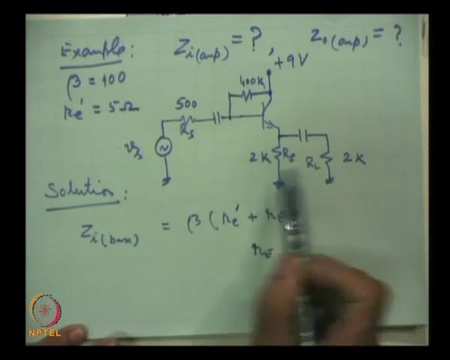 Example: Zi(amp) = ? , Zo(amp) = ?
β = 100
re' = 5Ω
+9V
400K
500
Rs
vs
2K RE RL 2K
Solution
Zi(base) = β (re' + rE
rE
NPTEL